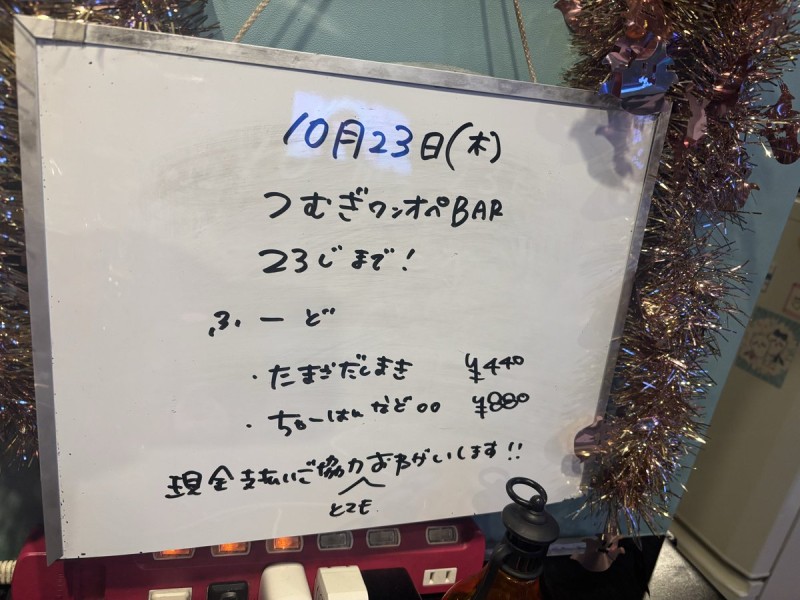 10月23日(木)
つむぎワンオペBAR
23じまで!
ふーど
・たまごだしまき ¥440
・ちゃーはんなど〇〇 ¥880
現金支払いご協力おねがいします!!
とても